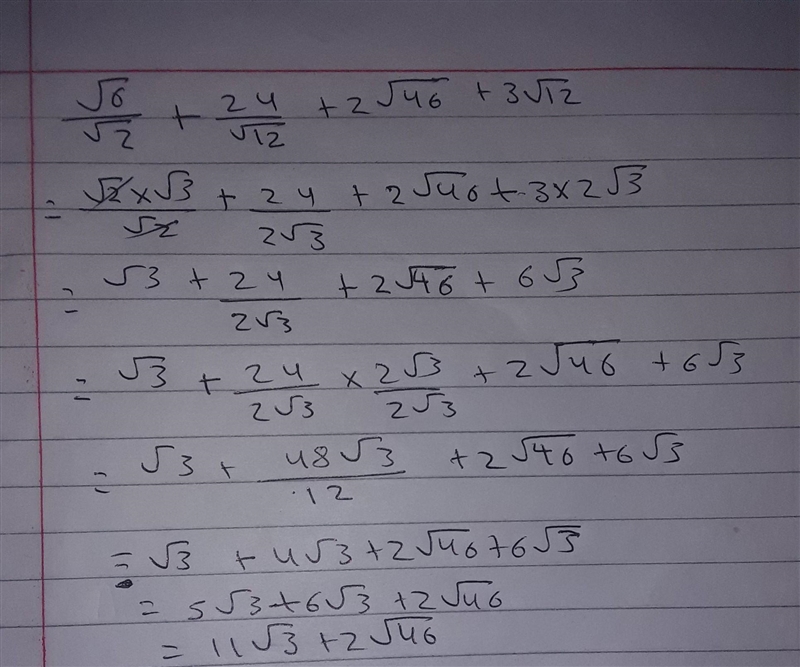 √6/√2 + 24/√12 + 2√46 + 3√12
= √2×√3/√2 + 24/2√3 + 2√46 + 3×2√3
= √3 + 24/2√3 + 2√46 + 6√3
= √3 + 24/2√3 × 2√3/2√3 + 2√46 + 6√3
= √3 + 48√3/12 + 2√46 + 6√3
= √3 + 4√3 + 2√46 + 6√3
= 5√3 + 6√3 + 2√46
= 11√3 + 2√46